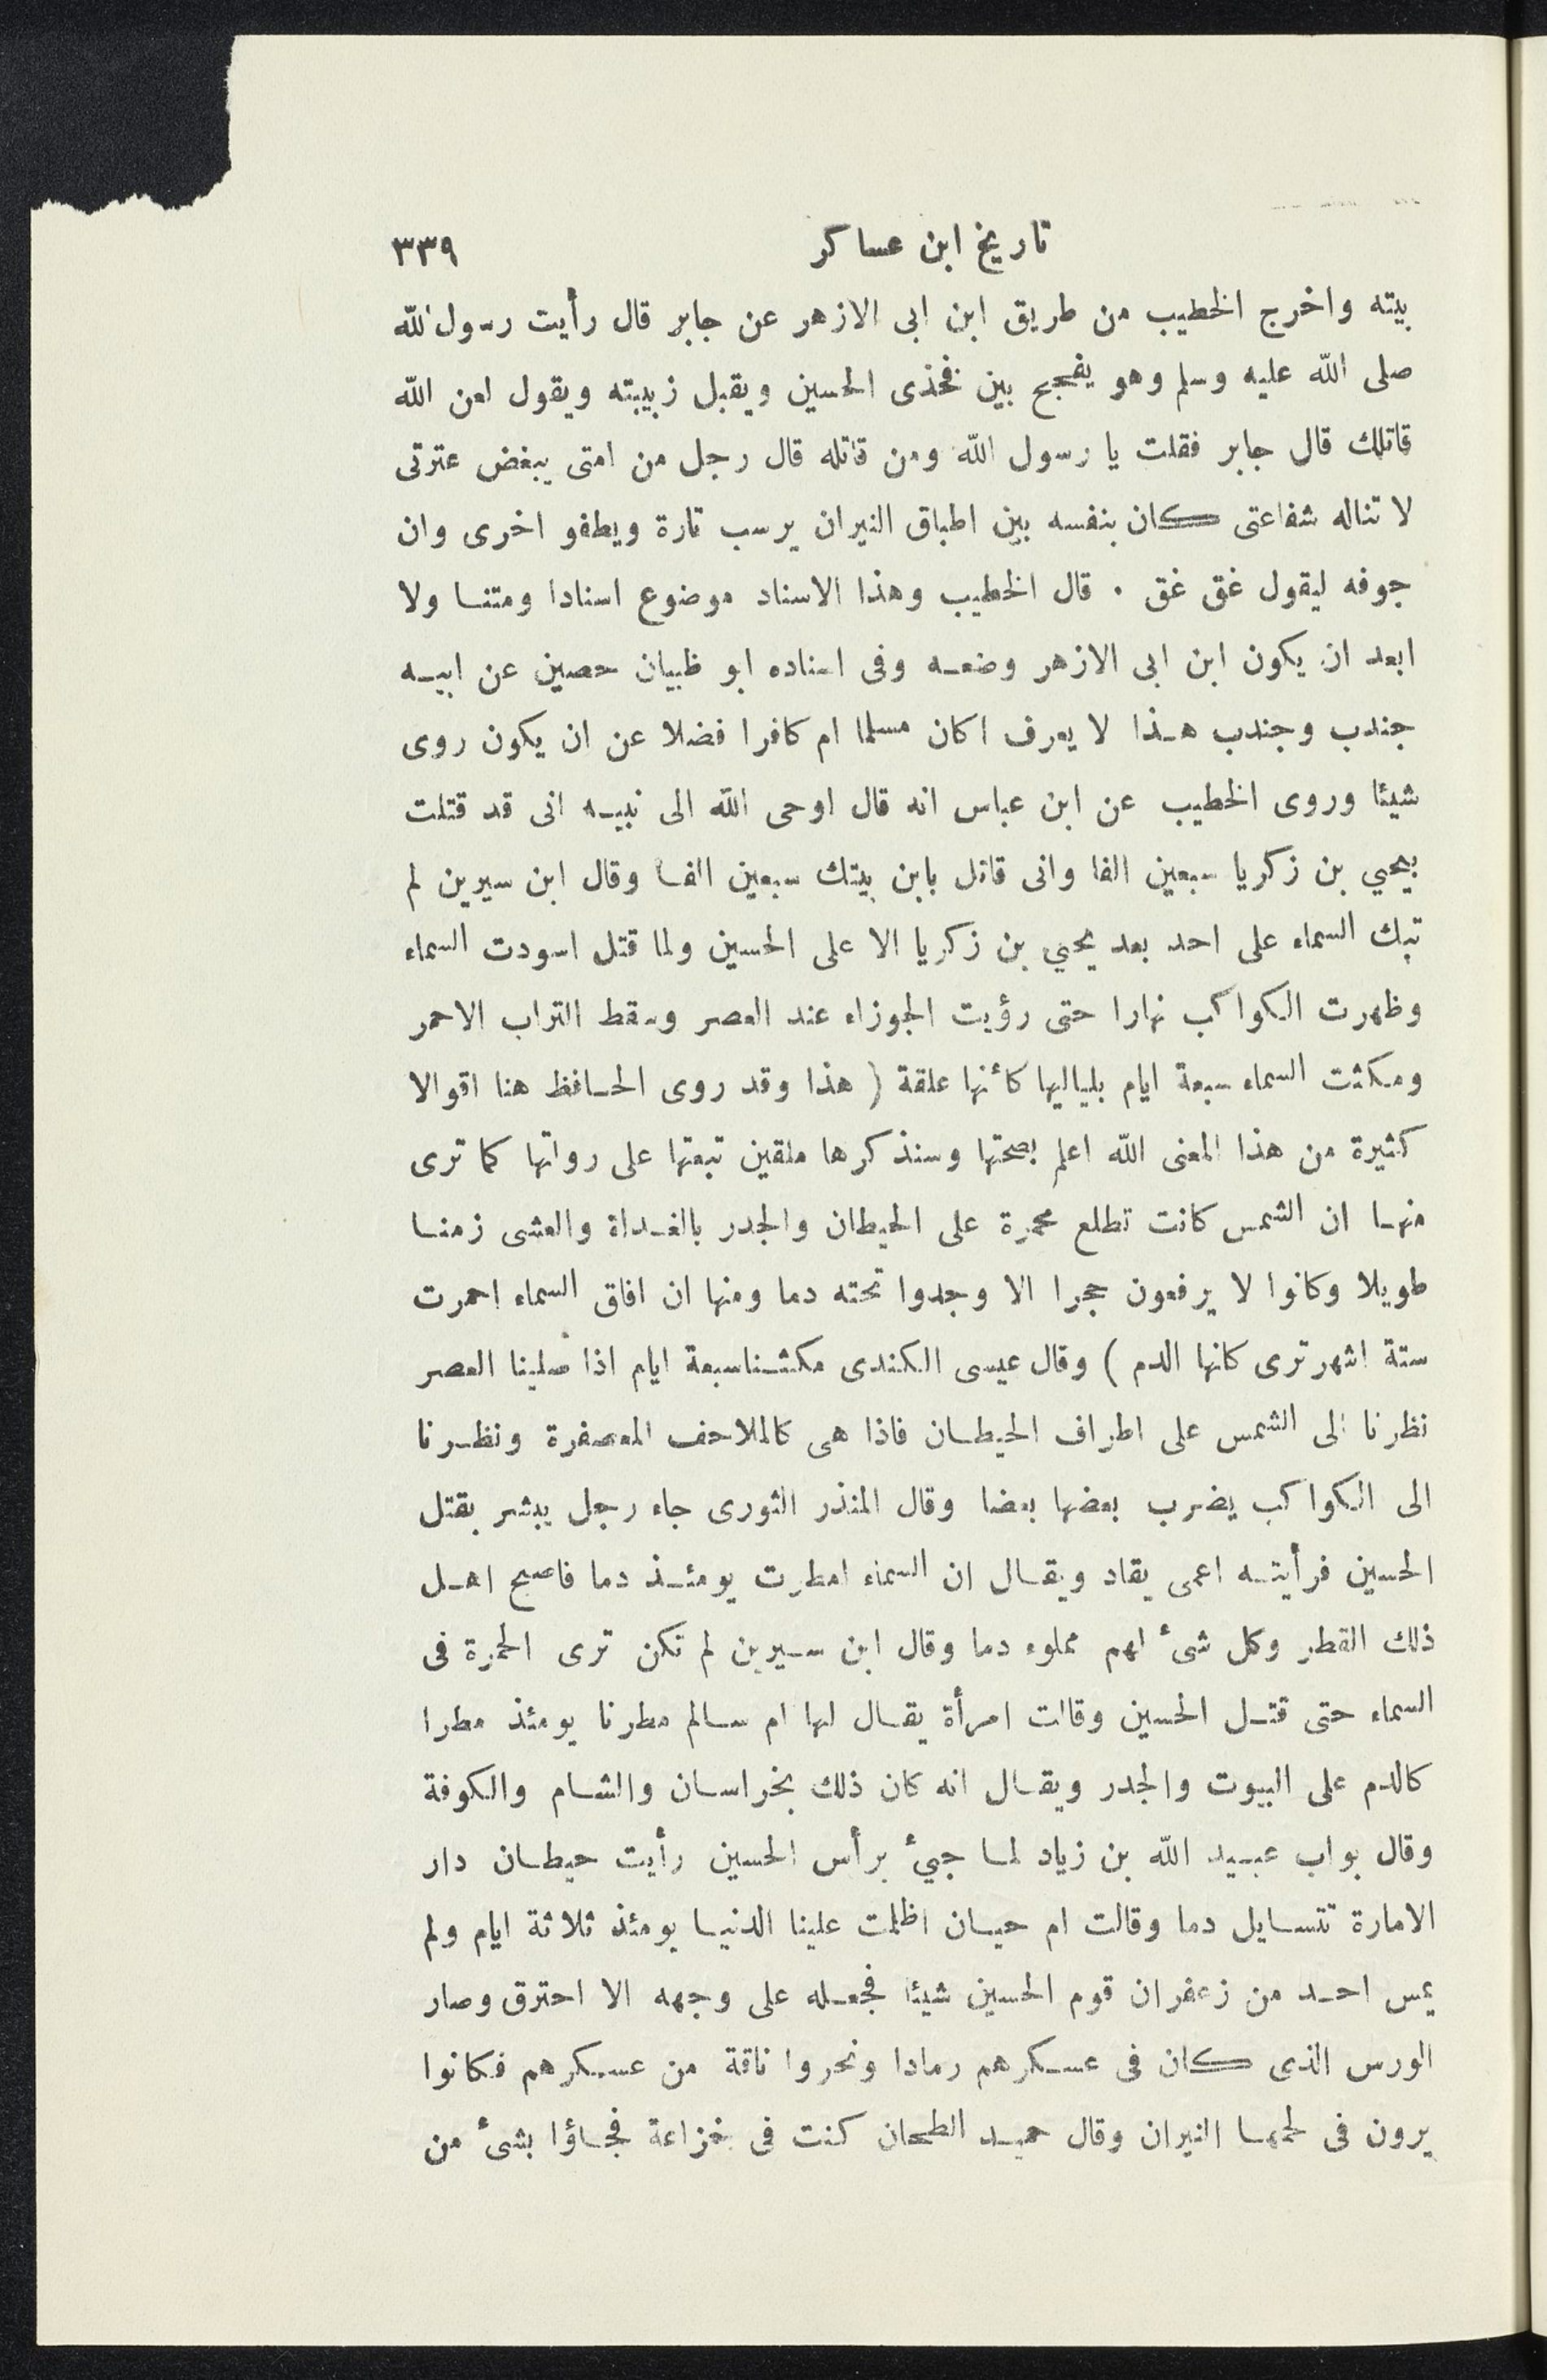 تاريخ ابن عساكر ٣٣٩
بيته واخرج الخطيب من طريق ابن ابى الازهر عن جابر قال رأيت رسول الله
صلى الله عليه وسلم وهو يفحج بين فخذى الحسين ويقبل زبيبته ويقول لعن الله
قاتلك قال جابر فقلت يا رسول الله ومن قاتله قال رجل من امتى يبغض عترتى
لا تناله شفاعتى كان بنفسه بين اطباق النيران يرسب تارة ويطفو اخرى وان
جوفه ليقول غق غق . قال الخطيب وهذا الاسناد موضوع اسنادا ومتنا ولا
ابعد ان يكون ابن ابى الازهر وضعه وفى اسناده ابو ظبيان حصين عن ابيه
جندب وجندب هذا لا يعرف اكان مسلما ام كافرا فضلا عن ان يكون روى
شيئا وروى الخطيب عن ابن عباس انه قال اوحى الله الى نبيه انى قد قتلت
بيحيي بن زكريا سبعين الفا وانى قاتل بابن بيتك سبعين الفا وقال ابن سيرين لم
تبك السماء على احد بعد يحيي بن زكريا الا على الحسين ولما قتل اسودت السماء
وظهرت الكواكب نهارا حتى رؤيت الجوزاء عند العصر وسقط التراب الاحمر
ومكثت السماء سبعة ايام بلياليها كأنها علقة ( هذا وقد روى الحافظ هنا اقوالا
كثيرة من هذا المعنى الله اعلم بصحتها وسنذكرها ملقين تبعتها على رواتها كما ترى
منها ان الشمس كانت تطلع محمرة على الحيطان والجدر بالغداة والعشى زمنا
طويلا وكانوا لا يرفعون حجرا الا وجدوا تحته دما ومنها ان افاق السماء احمرت
ستة اشهر ترى كانها الدم ) وقال عيسى الكندى مكثنا سبعة ايام اذا صلينا العصر
نظرنا الى الشمس على اطراف الحيطان فاذا هى كالملاحف المعصفرة ونظرنا
الى الكواكب يضرب بعضها بعضا وقال المنذر الثورى جاء رجل يبشر بقتل
الحسين فرأيته اعمى يقاد ويقال ان السماء امطرت يومئذ دما فاصبح اهل
ذلك القطر وكل شئ لهم مملوء دما وقال ابن سيرين لم تكن ترى الحمرة فى
السماء حتى قتل الحسين وقالت امرأة يقال لها ام سالم مطرنا يومئذ مطرا
كالدم على البيوت والجدر ويقال انه كان ذلك بخراسان والشام والكوفة
وقال بواب عبيد الله بن زياد لما جيئ برأس الحسين رأيت حيطان دار
الامارة تتسايل دما وقالت ام حيان اظلمت علينا الدنيا يومئذ ثلاثة ايام ولم
يمس احد من زعفران قوم الحسين شيئا فجعله على وجهه الا احترق وصار
الورس الذى كان فى عسكرهم رمادا ونحروا ناقة من عسكرهم فكانوا
يرون فى لحمها النيران وقال حميد الطحان كنت فى خزاعة فجاؤا بشئ من